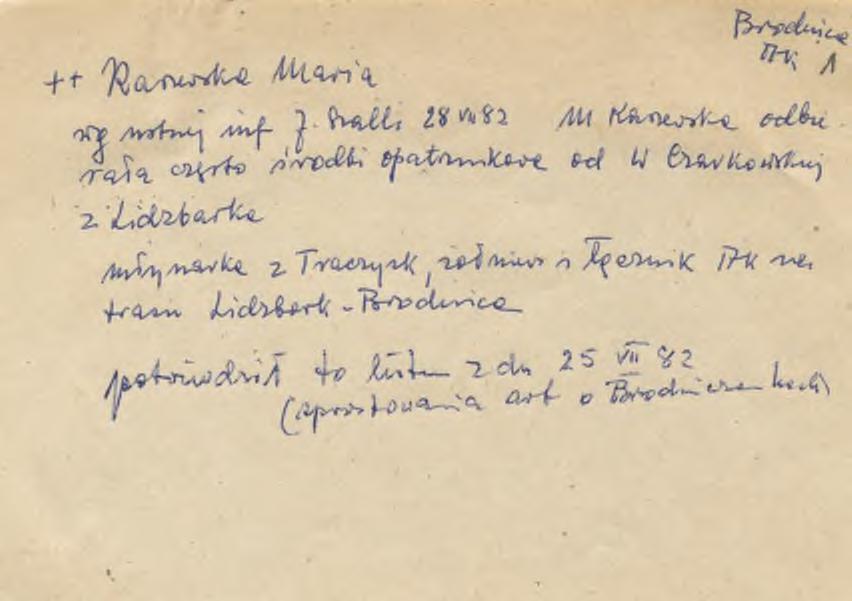 Brodnica
AK 1
++ Karzewska Maria
wg ustnej inf J. Szalli 28 VII 82 M Karzewska odbie-
rała często środki opatrunkowe od W Czarkowskiej
z Lidzbarka
młynarka z Traczysk, żołnierz i łącznik AK na
trasie Lidzbark - Brodnica
potwierdził to listem z dn 25 VII 82
(sprostowania art o Brodniczankach)